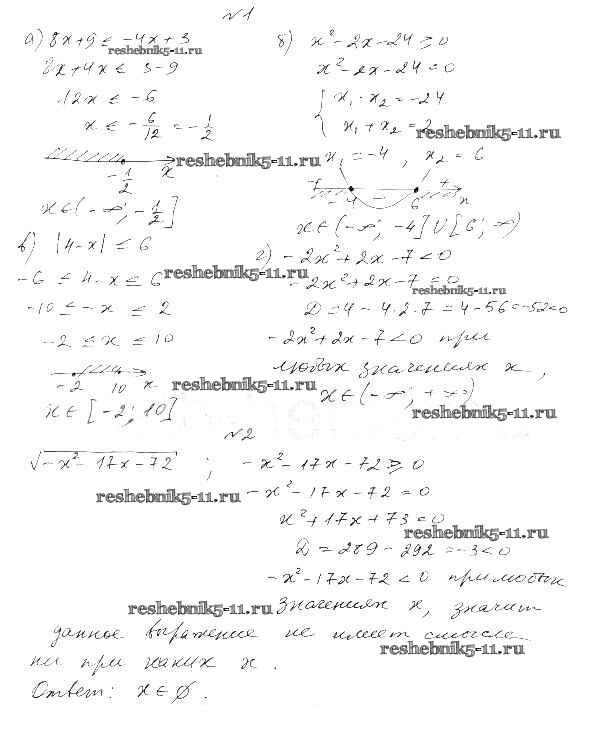 №1
а) 8x+9 ≤ -4x+3
reshebnik5-11.ru
8x+4x ≤ 3-9
12x ≤ -6
x ≤ -6/12 = -1/2
-1/2 x
reshebnik5-11.ru
x∈(-∞; -1/2]
б) x²-2x-24 ≥ 0
x²-2x-24=0
{ x₁·x₂=-24
x₁+x₂=2
reshebnik5-11.ru
x₁=-4, x₂=6
+ -4 - 6 + x
x∈(-∞; -4]∪[6; ∞)
в) |4-x| ≤ 6
-6 ≤ 4-x ≤ 6
reshebnik5-11.ru
-10 ≤ -x ≤ 2
-2 ≤ x ≤ 10
-2 10 x
reshebnik5-11.ru
x∈[-2; 10]
г) -2x²+2x-7<0
-2x²+2x-7=0
reshebnik5-11.ru
D=4-4·2·7=4-56=-52<0
-2x²+2x-7<0 при
любых значениях x,
x∈(-∞; +∞)
reshebnik5-11.ru
№2
√-x²-17x-72 ; -x²-17x-72 ≥ 0
reshebnik5-11.ru -x²-17x-72=0
x²+17x+73=0
reshebnik5-11.ru
D=289-292=-3<0
-x²-17x-72<0 при любых
reshebnik5-11.ru значениях x, значит
данное выражение не имеет смысла
reshebnik5-11.ru
ни при каких x.
Ответ: x∈∅.